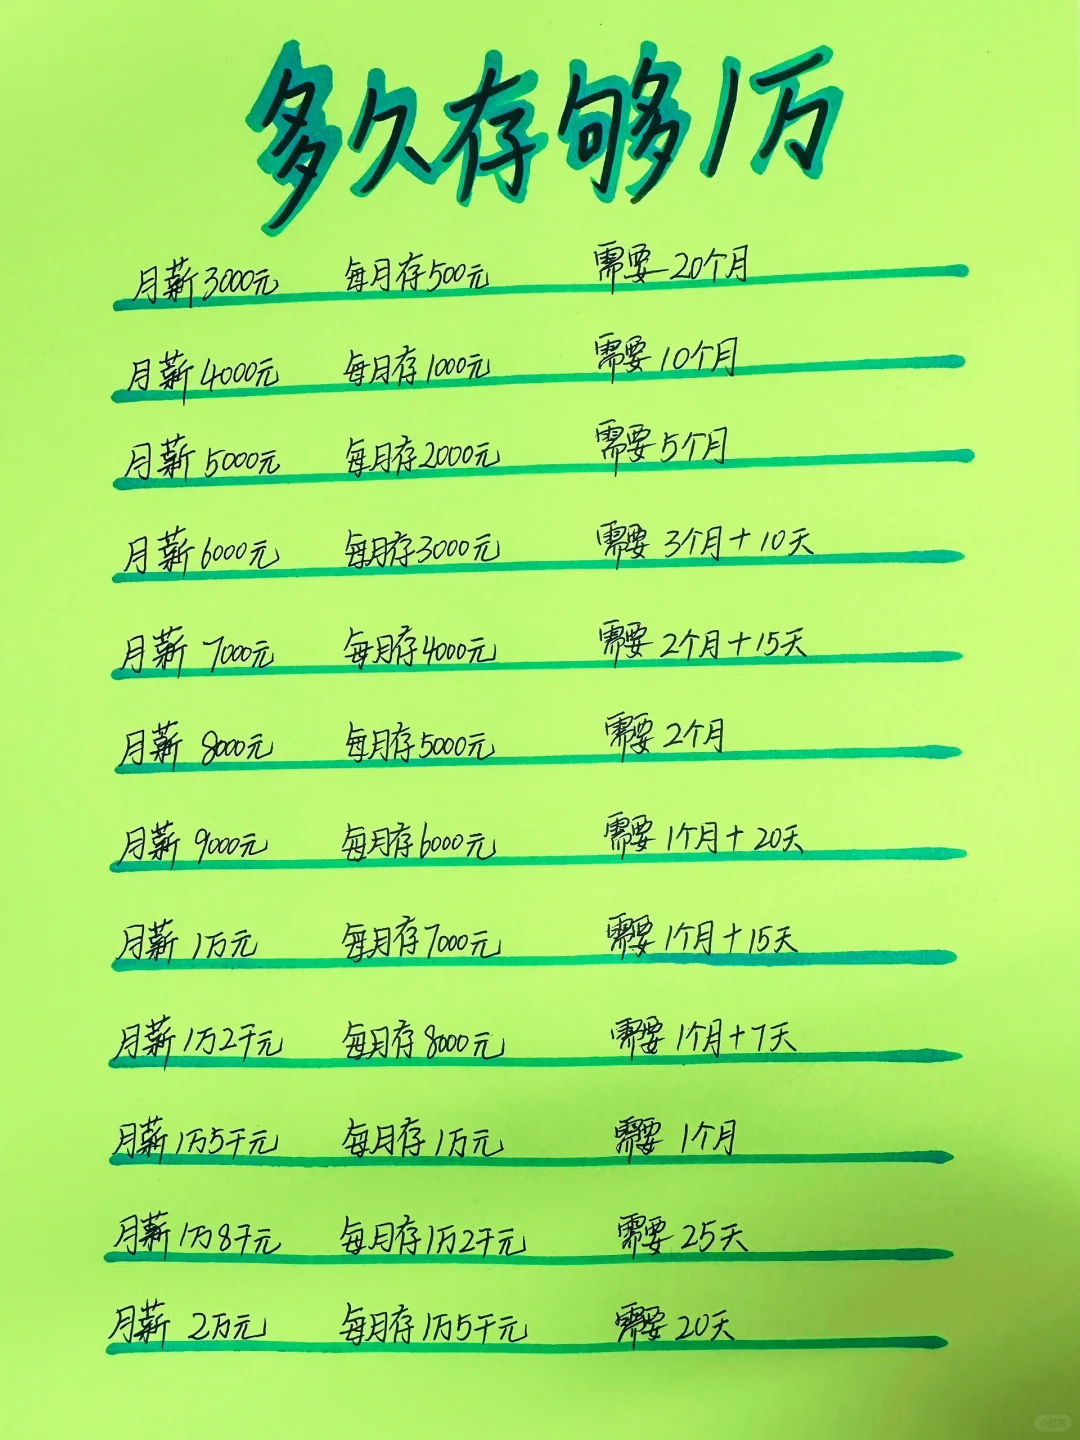 多久存够1万
月薪3000元 每月存500元 需要20个月
月薪4000元 每月存1000元 需要10个月
月薪5000元 每月存2000元 需要5个月
月薪6000元 每月存3000元 需要3个月+10天
月薪7000元 每月存4000元 需要2个月+15天
月薪8000元 每月存5000元 需要2个月
月薪9000元 每月存6000元 需要1个月+20天
月薪1万元 每月存7000元 需要1个月+15天
月薪1万2千元 每月存8000元 需要1个月+7天
月薪1万5千元 每月存1万元 需要1个月
月薪1万8千元 每月存1万2千元 需要25天
月薪2万元 每月存1万5千元 需要20天
小红书